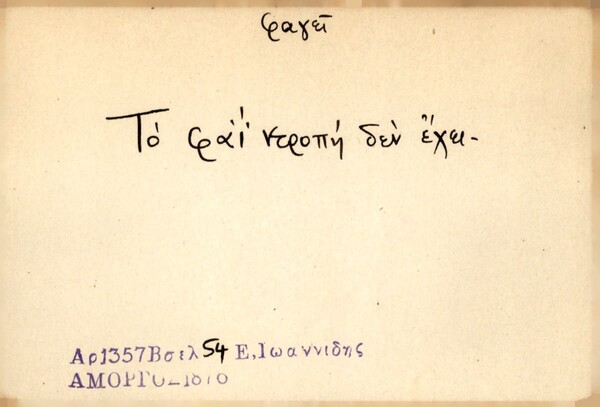 φαγεῖ
Τὸ φάϊ ντροπὴ δὲν ἔχει-
Αρ1357Βσελ54 Ε,Ιωαννιδης
ΑΜΟΡΓΟΣ1876